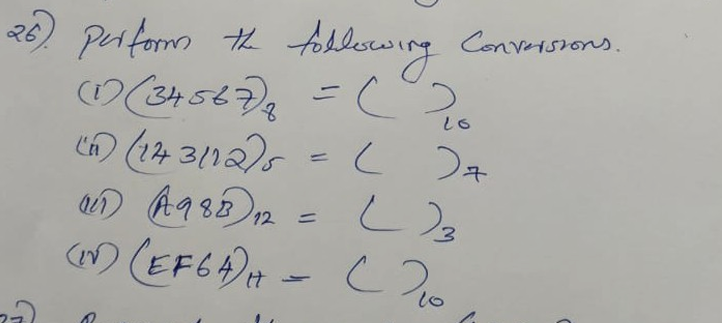 26). Perform the following Conversions.
(i) (34567)8 = ( )10
(ii) (143112)5 = ( )7
(iii) (A98B)12 = ( )3
(iv) (EF64)H = ( )10
27)